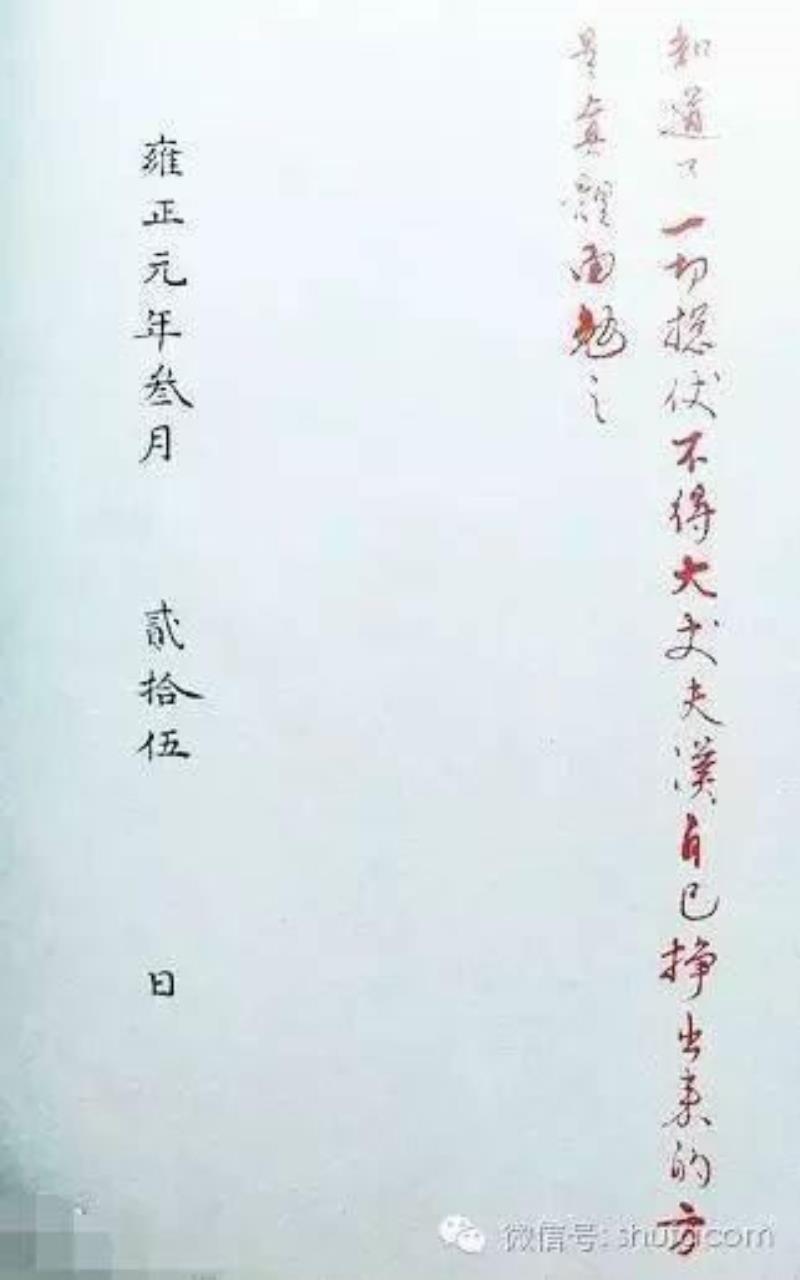 知道了一切摠仗不得大丈夫漢自己掙出来的方
是真體面勉之
雍正元年叁月 貳拾伍 日
微信号: